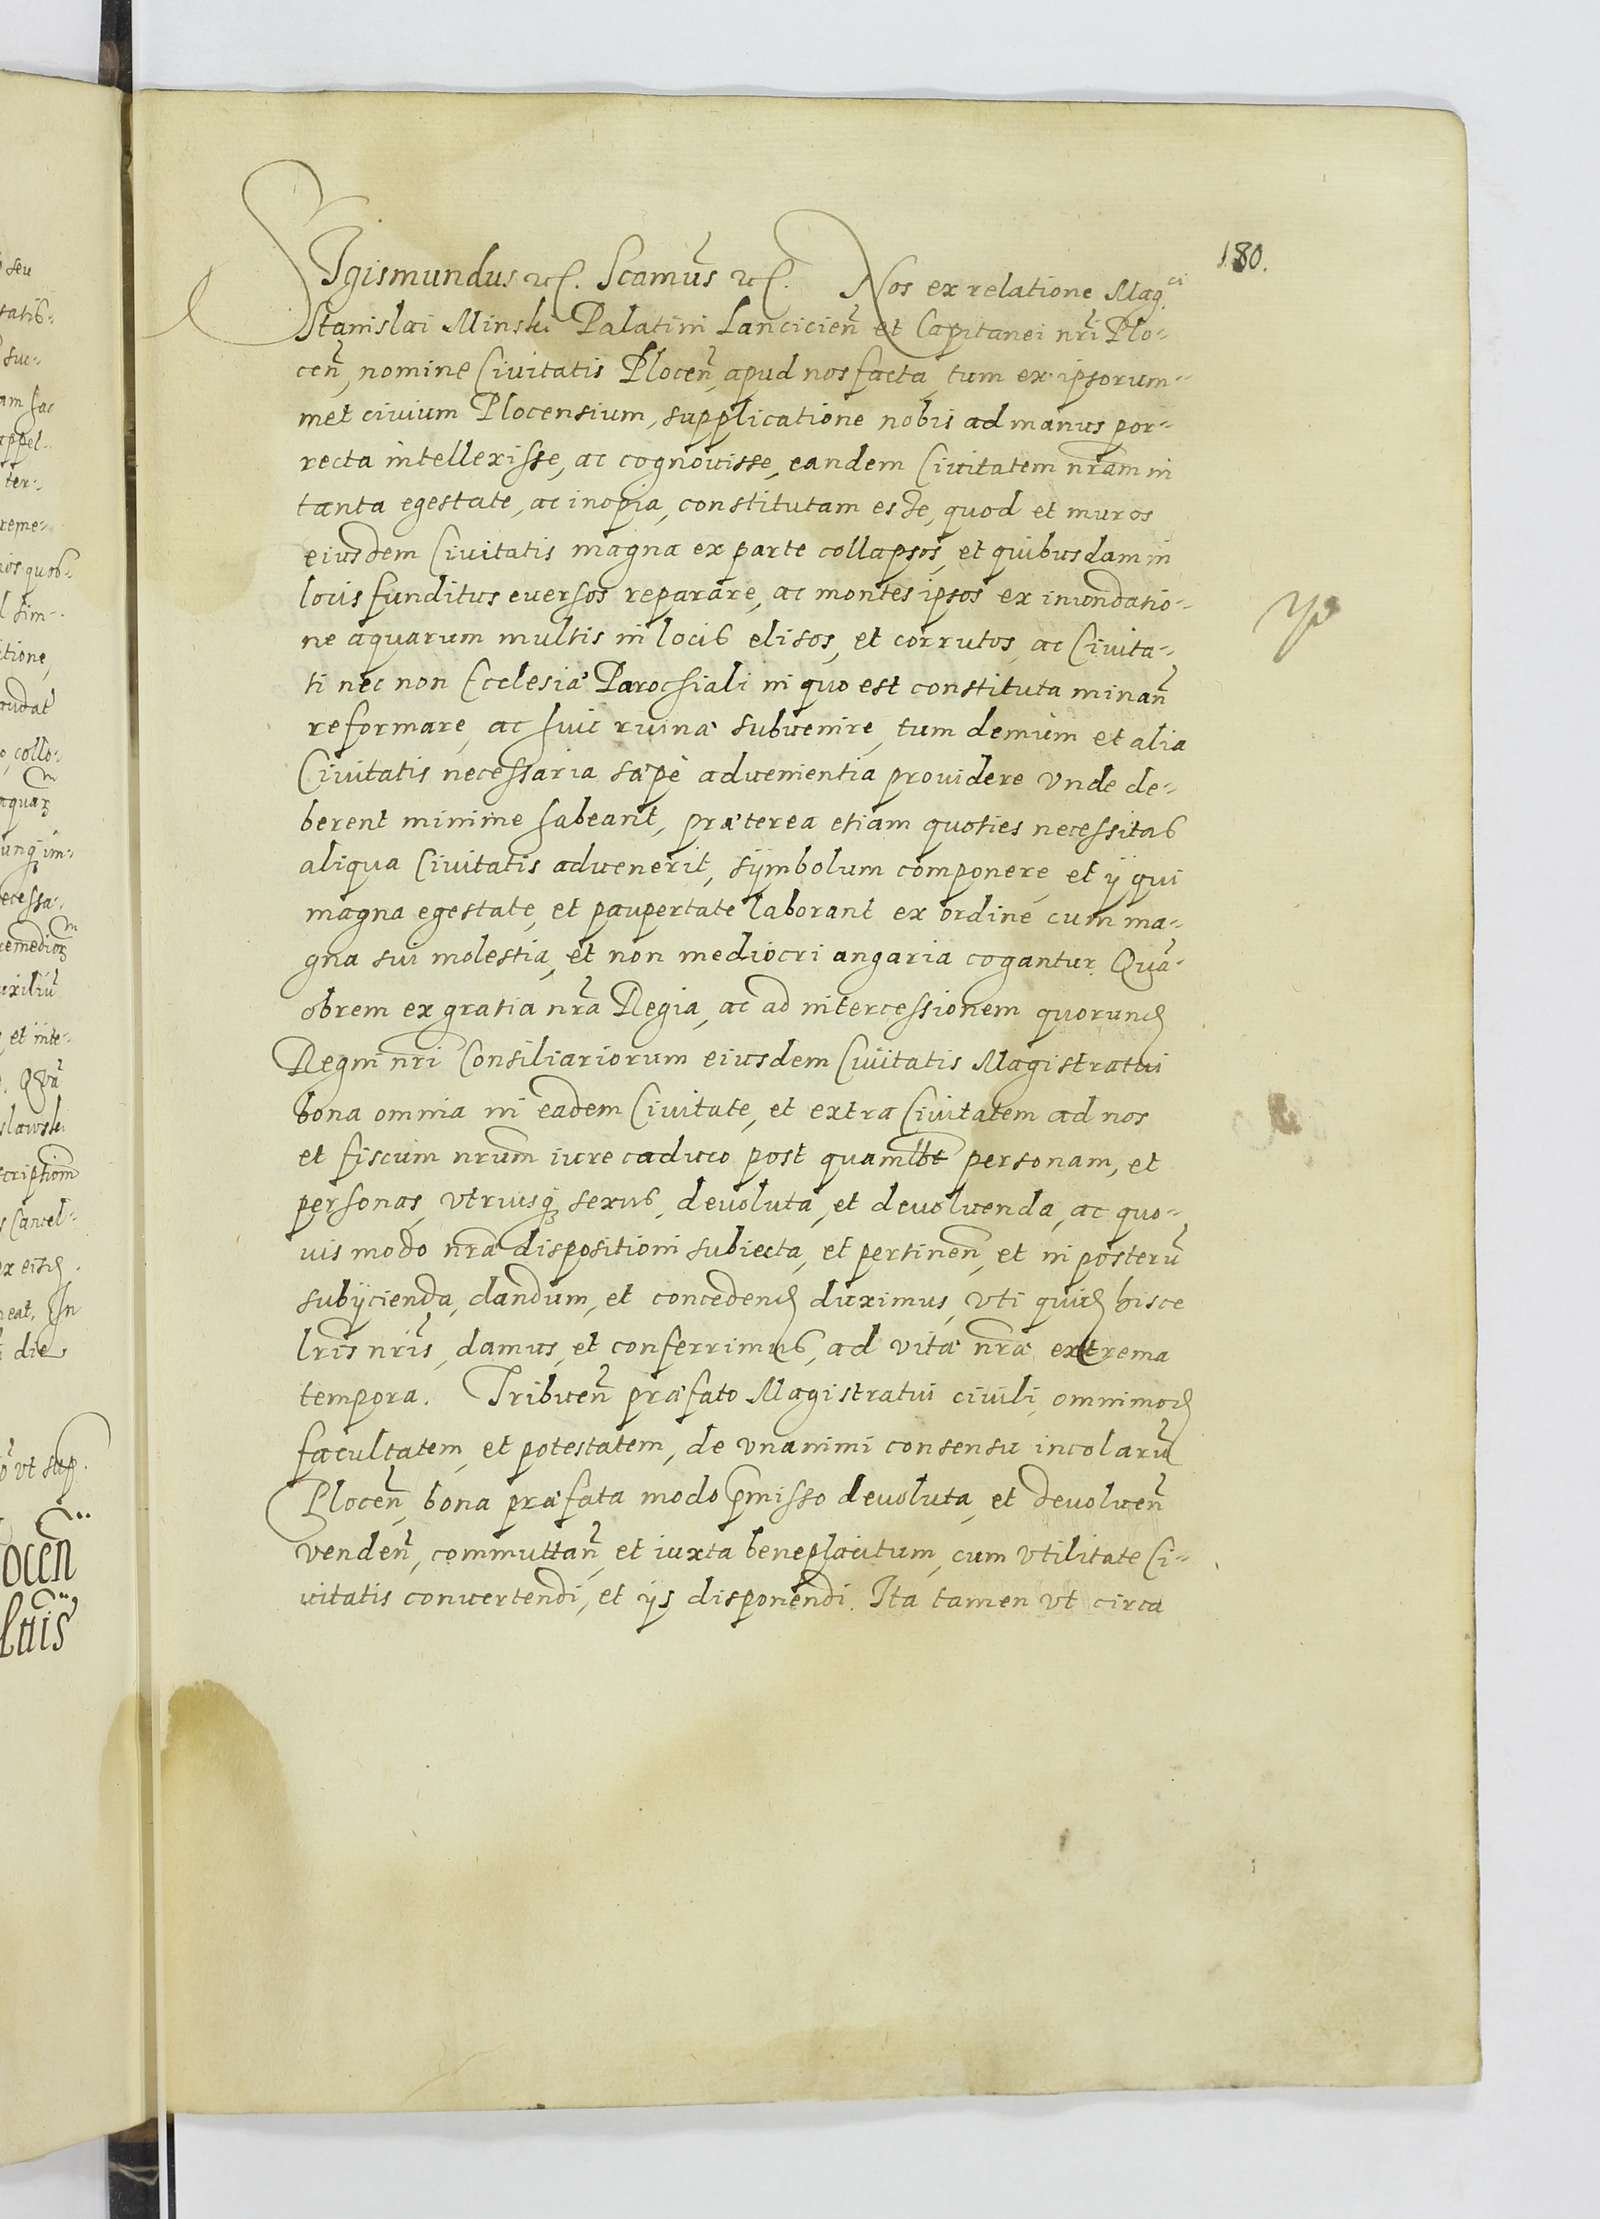 180.
Sigismundus etc. Scamus etc. Nos ex relatione Mag.ci
Stanislai Minski Palatini Lancicien̄ et Capitanei nr̄i Plo-
cen̄, nomine Ciuitatis Plocen̄, apud nos facta, tum ex ipsorum-
met ciuium Plocensium, supplicatione nobis ad manus por-
recta intellexisse, ac cognouisse, eandem Ciuitatem nr̄am in
tanta egestate, ac inopia, constitutam esse, quod et muros
eiusdem Ciuitatis magna ex parte collapsos, et quibusdam in
locis funditus euersos reparare, ac montes ipsos ex inundatio-
ne aquarum multis in locis elisos, et corrutos, ac Ciuita-
ti nec non Ecclesiæ Parochiali in quo est constituta minan̄
reformare, ac huic ruinæ subuenire, tum demum et alia
Ciuitatis necessaria sæpè aduenientia prouidere vnde de-
berent minime habeant, præterea etiam quoties necessitas
aliqua Ciuitatis aduenerit, sÿmbolum componere, et ÿ qui
magna egestate, et paupertate laborant ex ordine cum ma-
gna sui molestia, et non mediocri angaria cogantur. Quā-
obrem ex gratia nr̄a Regia, ac ad intercessionem quorund
Regni nr̄i Consiliariorum eiusdem Ciuitatis Magistratui
bona omnia in eadem Ciuitate, et extra Ciuitatem ad nos
et fiscum nr̄um iure caduco post quamlbt personam, et
personas, vtriusq; sexus, deuoluta, et deuoluenda, ac quo-
uis modo nr̄æ dispositioni subiecta, et pertinen̄, et in posterū
subÿcienda, dandum, et conceden̄d duximus, vti quid hisce
lr̄is nr̄is, damus, et conferrimus, ad vitæ nr̄æ extrema
tempora. Tribuen̄ præfato Magistratui ciuili, omnimod
facultatem, et potestatem, de vnanimi consensu incolarū
Plocen̄, bona præfata modo p̄misso deuoluta, et deuoluen̄
venden̄, commuttan̄, et iuxta beneplacitum, cum vtilitate Ci-
uitatis conuertendi, et ÿs disponendi. Ita tamen vt circa